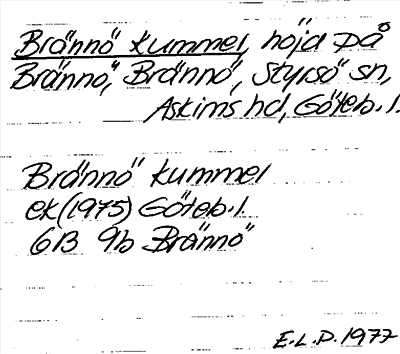 Brännö kummel, höjd på
Brännö, Brännö, Styrsö sn,
Askims hd, Göteb. l.
Brännö kummel
ek (1975) Göteb. l.
6B 9b Brännö
E.L.P. 1977